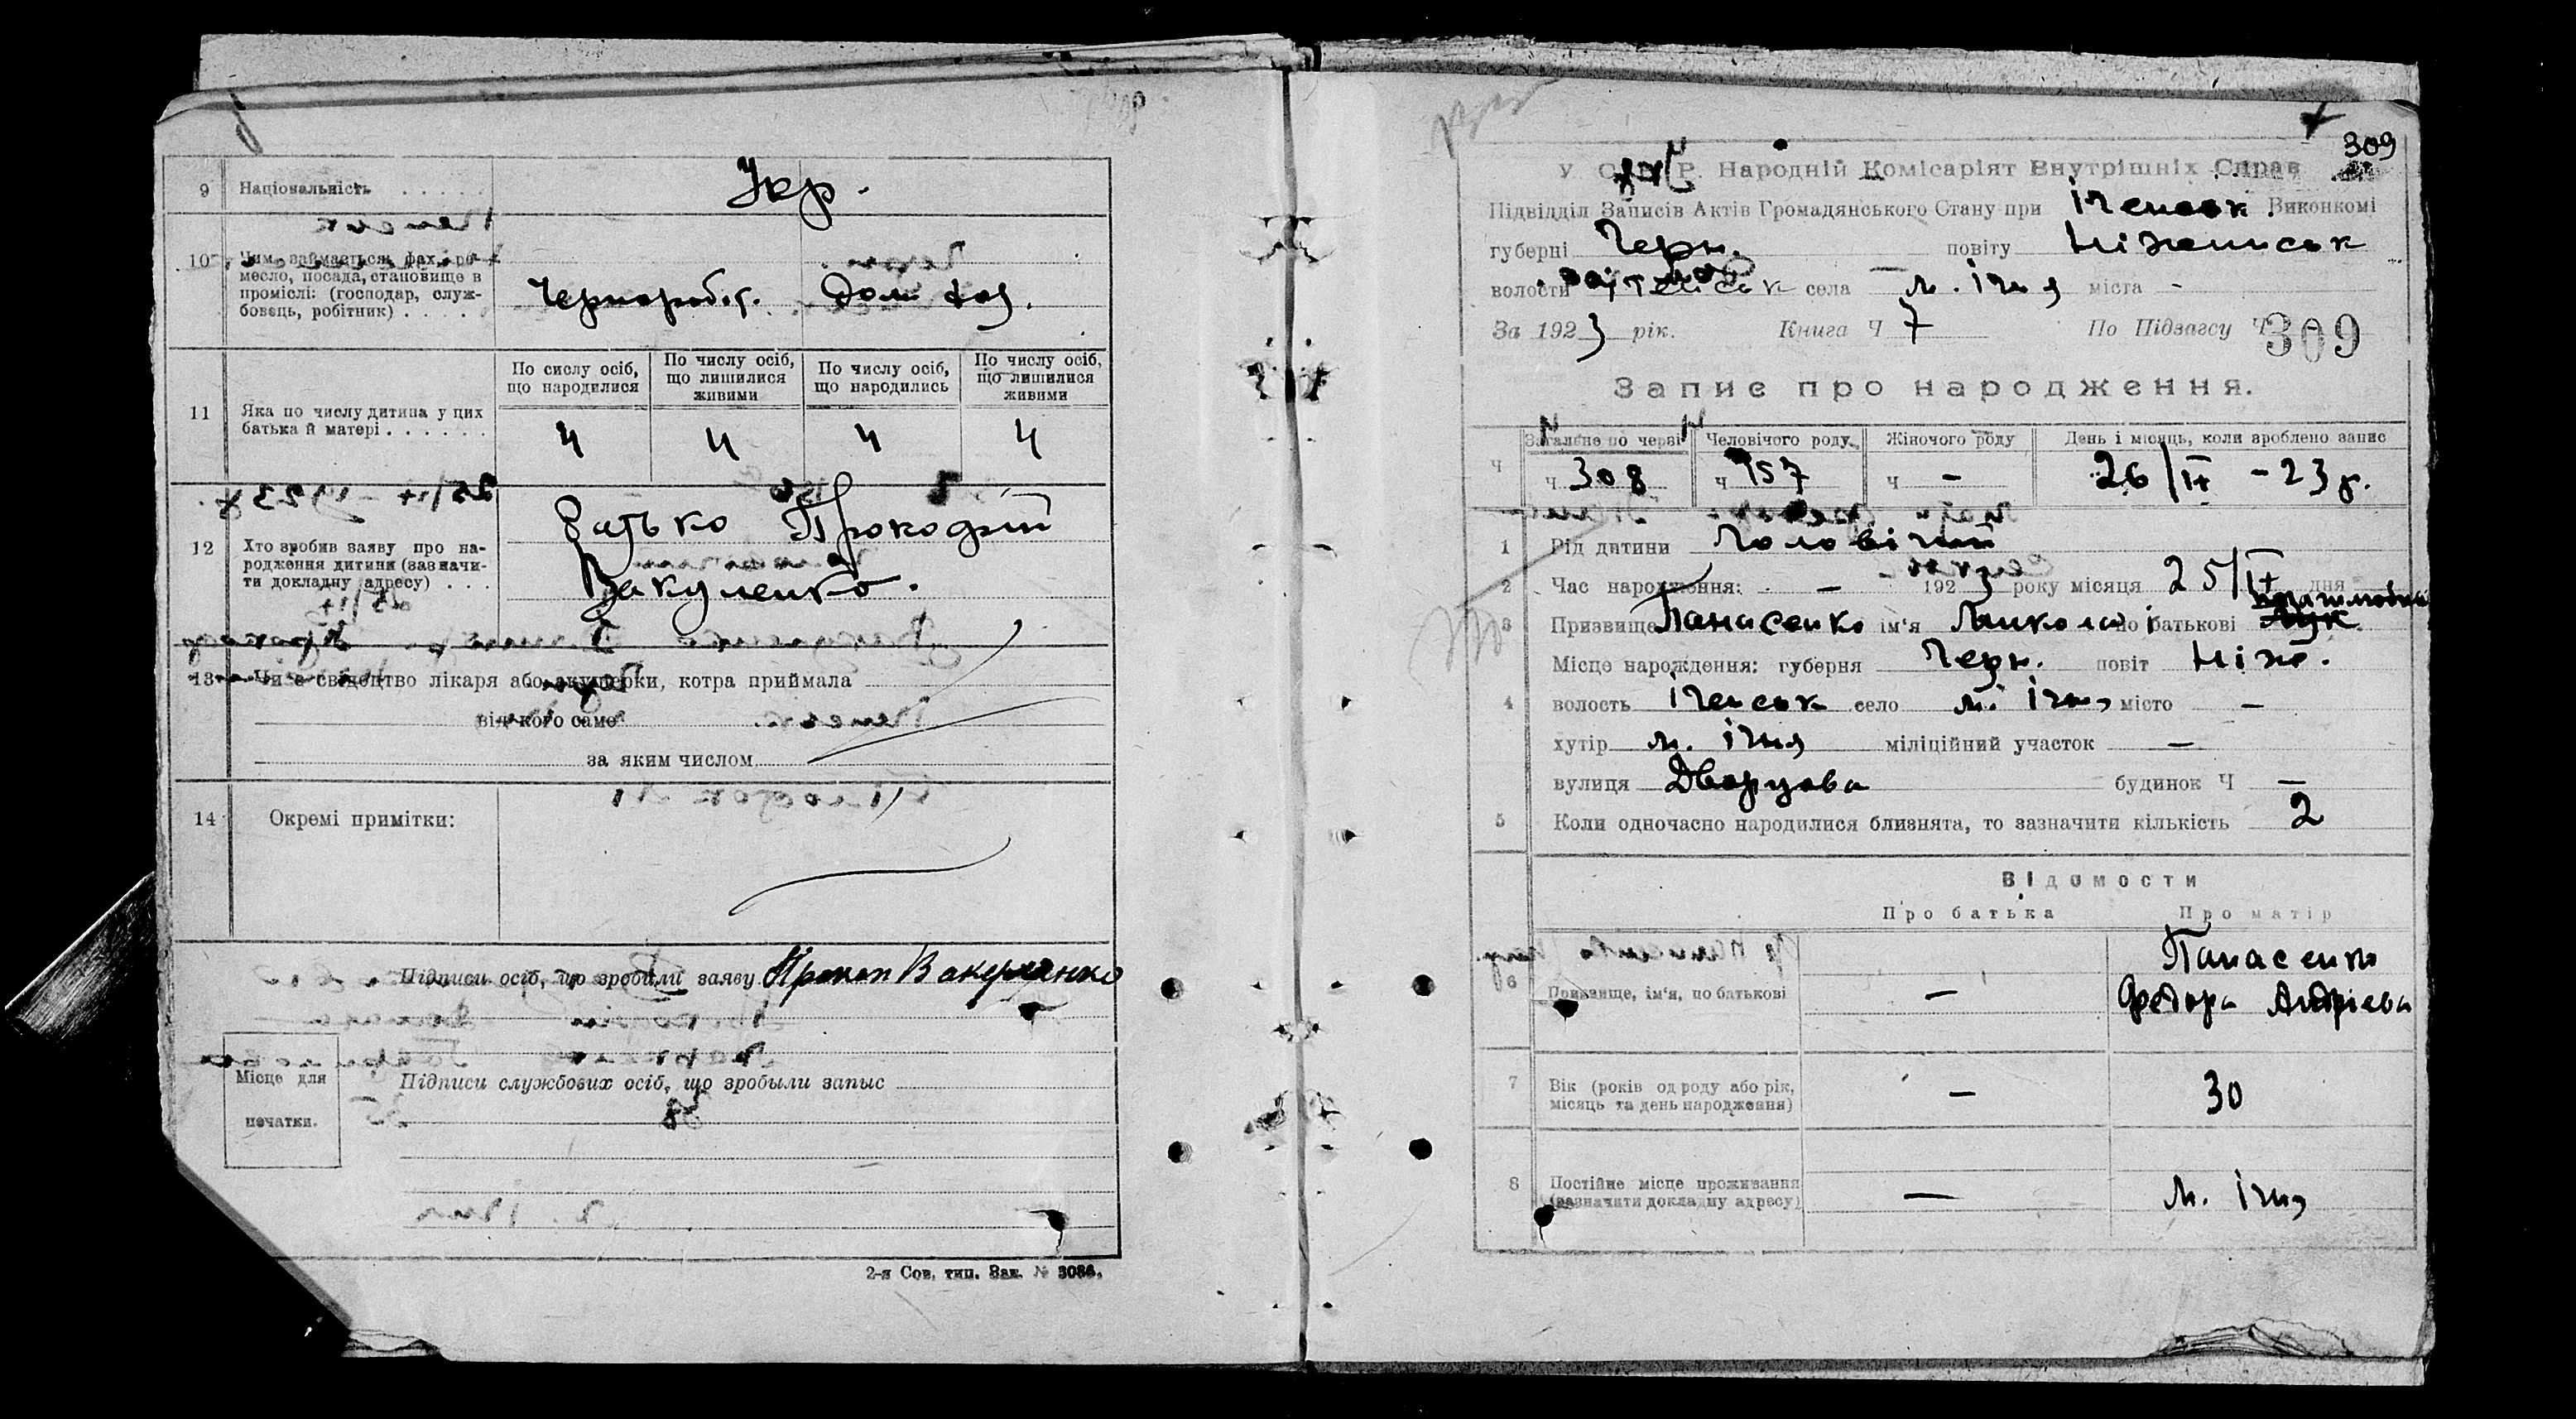 9 Національність . . . . . Укр.
10 Чим займається, фах, ре-
месло, посада, становище в
проміслі: (господар, служ-
бовець, робітник) . . . . Чернороб. Дом.
По сислу осіб, що народилися
По числу осіб, що лишилися живими
По числу осіб, що народились
По числу осіб, що лишилися живими
11 Яка по числу дитина у цих
батька й матері . . . . . . 4 4 4 4
12 Хто зробив заяву про на-
родження дитини (зазначи-
ти докладну адресу) . . .
Батько Прокофий
Вакуленко.
13 Чи є свідоцтво лікаря або акушерки, котра приймала
від кого саме
за яким числом
14 Окремі примітки:
Підписи осіб, що зробили заяву Прокоп Вакуленко
Місце для
печатки.
Підписи службових осіб, що зробыли запыс
2-я Сов. тип. Зак. № 3086.
309
У. С. Р. Р. Народній Комісаріят Внутрішніх Справ
Підвідділ Записів Актів Громадянського Стану при Іченськ. Виконкомі
губерні Черн. повіту Ніженськ
волости села м. Ічня міста -
За 1923 рік. Книга Ч 7 По Підзагсу Ч 309
Запис про народження.
Загальне по черзі Человічого роду Жіночого роду День і місяць, коли зроблено запис
Ч ч 308 ч 157 ч – 26/IX - 23 г.
1 Рід дитини Чоловічий
2 Час народження: – 1923 року місяця 25/IX дня
3 Призвище Панасенко ім'я Миколай по батькові
Місце народження: губерня Черн. повіт Ніж.
4 волость Іченськ село м. Ічня місто –
хутір м. Ічня міліційний участок –
вулиця Дворцова будинок Ч –
5 Коли одночасно народилися близнята, то зазначити кількість 2
Відомости
Про батька Про матір
6 Призвище, ім'я, по батькові – Панасенко
Федора Андрієва
7 Вік (років од роду або рік,
місяць та день народження) – 30
8 Постійне місце проживання
(зазначити докладну адресу) – м. Ічня